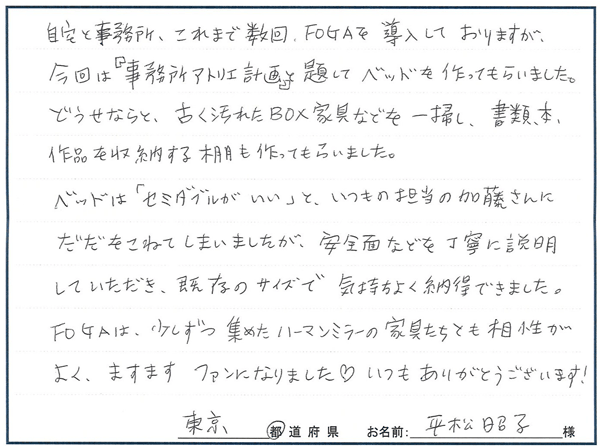 自宅と事務所、これまで数回、FOGAを導入しておりますが、
今回は『事務所アトリエ計画』と題してベッドを作ってもらいました。
どうせならと、古く汚れたBOX家具などを一掃し、書類、本、
作品を収納する棚も作ってもらいました。
ベッドは「セミダブルがいい」と、いつもの担当の加藤さんに
だだをこねてしまいましたが、安全面などを丁寧に説明
していただき、既存のサイズで気持ちよく納得できました。
FOGAは、少しずつ集めたハーマンミラーの家具たちとも相性が
よく、ますますファンになりました♡いつもありがとうございます!
東京 都道府県 お名前: 平松昭子 様